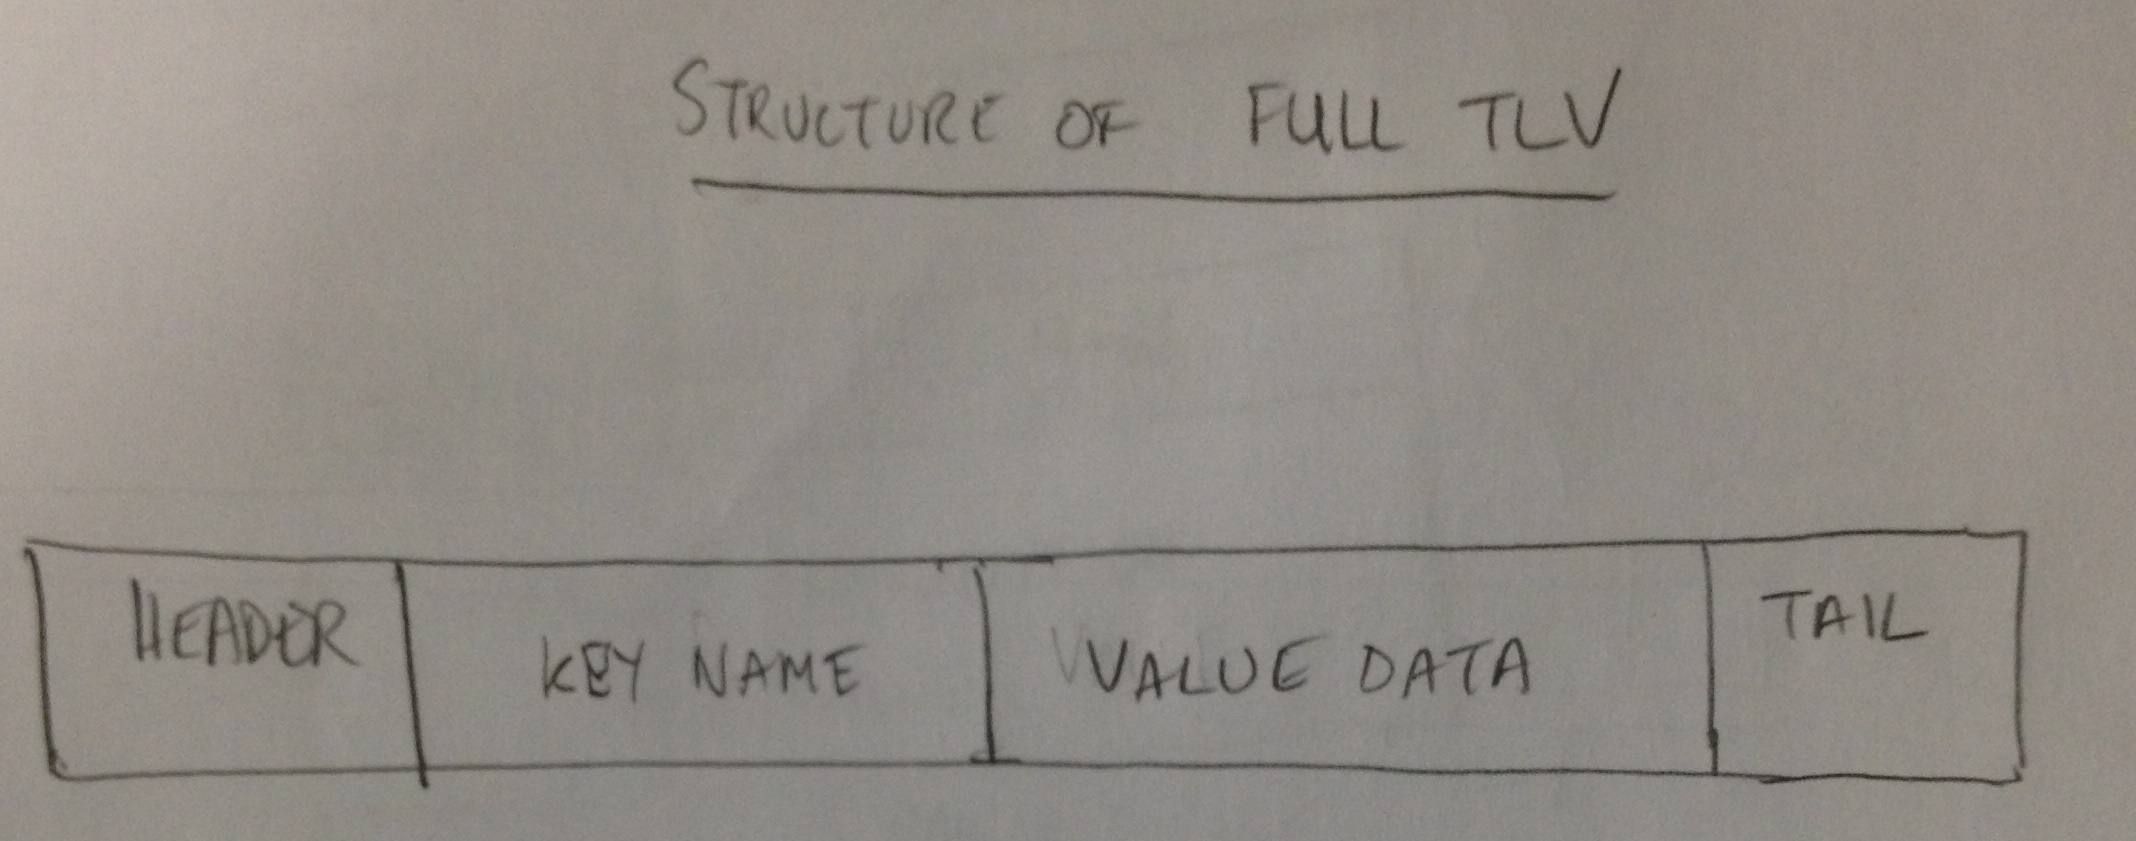 STRUCTURE OF FULL TLV
HEADER
KEY NAME
VALUE DATA
TAIL